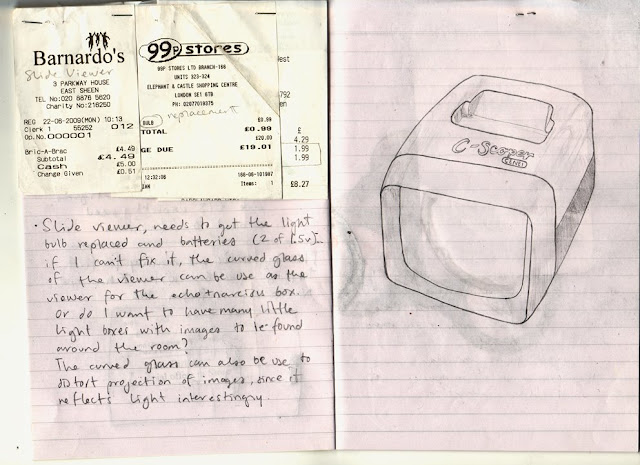 Barnardo's
Slide Viewer
3 PARKWAY HOUSE
EAST SHEEN
TEL No:020 8876 5620
Charity No:216250
REG 22-06-2009(MON) 10:13
Clerk 1 55252 012
Op.No.000001
Bric-A-Brac £4.49
Subtotal £4.49
Cash £5.00
Change Given £0.51
99p stores
99P STORES LTD BRANCH-166
UNITS 323-324
ELEPHANT & CASTLE SHOPPING CENTRE
LONDON SE1 6TB
PH: 02077019375
replacement
BULB £0.99
TOTAL £0.99
£20.00
GE DUE £19.01
12:32:06
Items: 1
£
4.29
1.99
1.99
£8.27
C-Scoper
• Slide viewer, needs to get the light
bulb replaced and batteries (2 of 1.5v)...
if I can't fix it, the curved glass
of the viewer can be use as the
viewer for the echo+narcisus box.
Or do I want to have many little
light boxes with images to be found
around the room?
The curved glass can also be use to
distort projection of images, since it
reflects light interestingly.